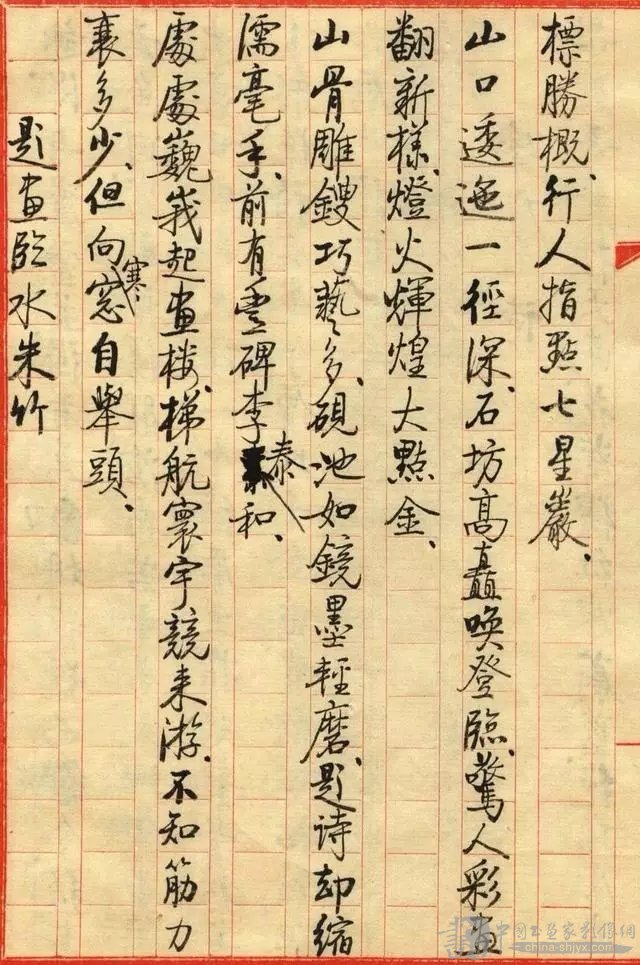 標勝概、行人指點七星巖、
山口逶迤一徑深、石坊高矗喚登臨、驚人彩畫
翻新樣、燈火輝煌大點金、
山骨雕鎪巧藝多、硯池如鏡墨輕磨、題詩却縮
濡毫手、前有豐碑李泰和、
處處巍峩起畫樓、梯航寰宇競来游、不知筋力
衰多少、但向寒窓自舉頭、
題畫臨水朱竹
中国书画家影像網
china-shjyx.com